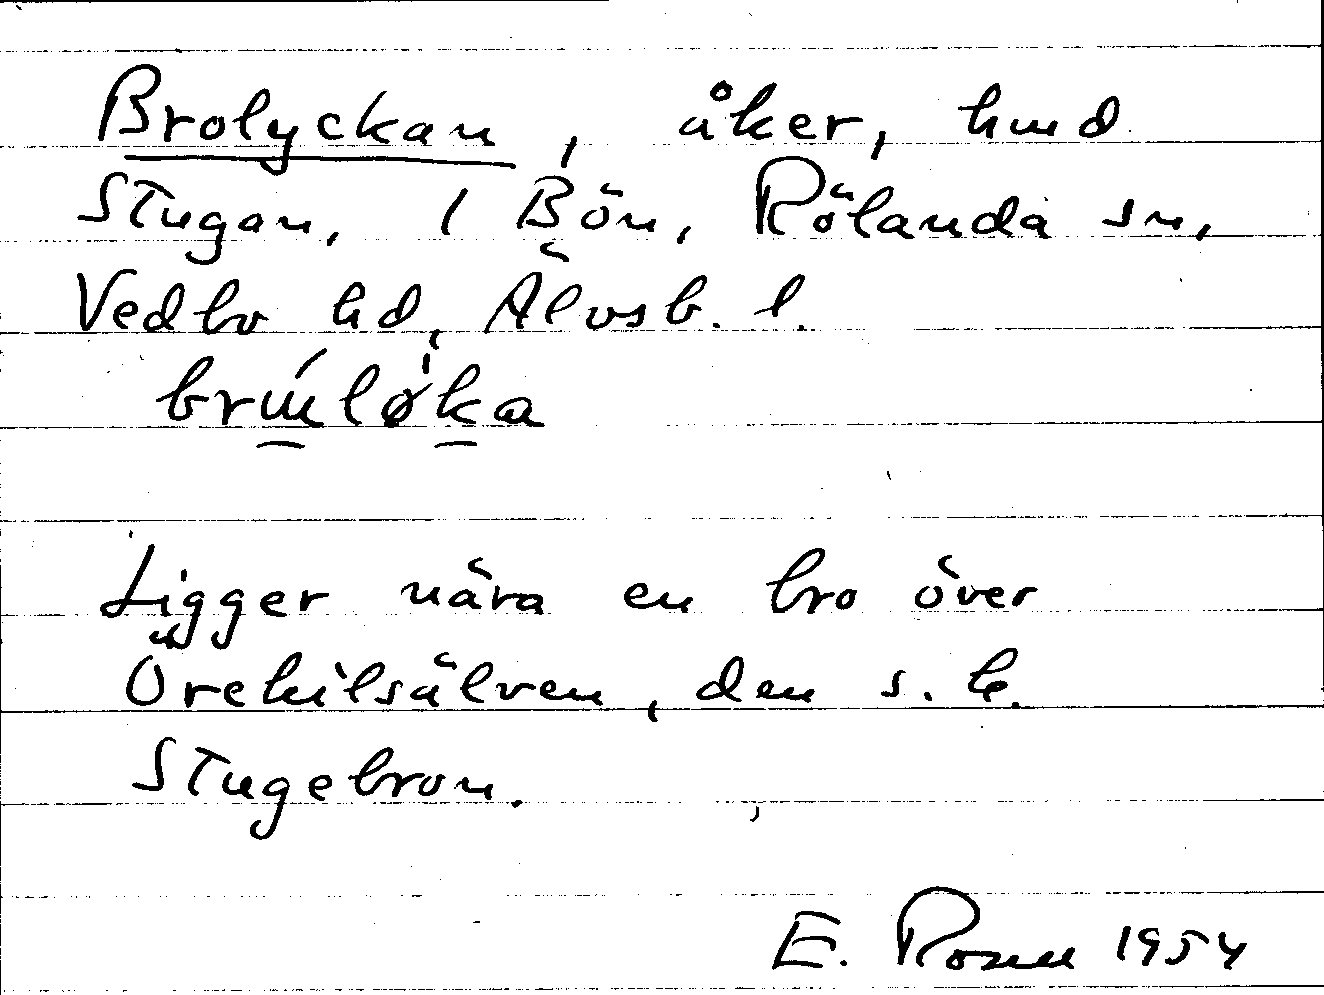 Brolyckan, åker, hmd
Stugan, 1 Bön, Rölanda sn,
Vedbo hd, Älvsb. l.
Ligger nära en bro över
Örekilsälven, den s. k.
Stugebron.
E. Rosen 1954